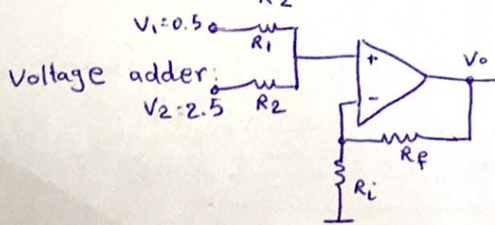 V₁=0.5
R₁
+
Vo
Voltage adder:
V2=2.5
R2
-
Rf
Ri